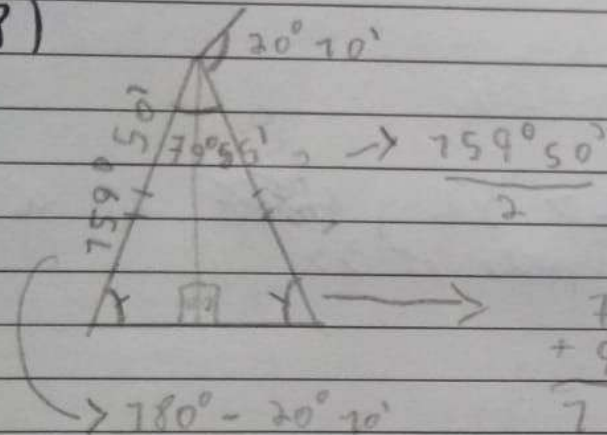 8)
20° 10'
159° 50'
79° 55' → 159° 50'
2
γ γ
+
180° - 20° 10'